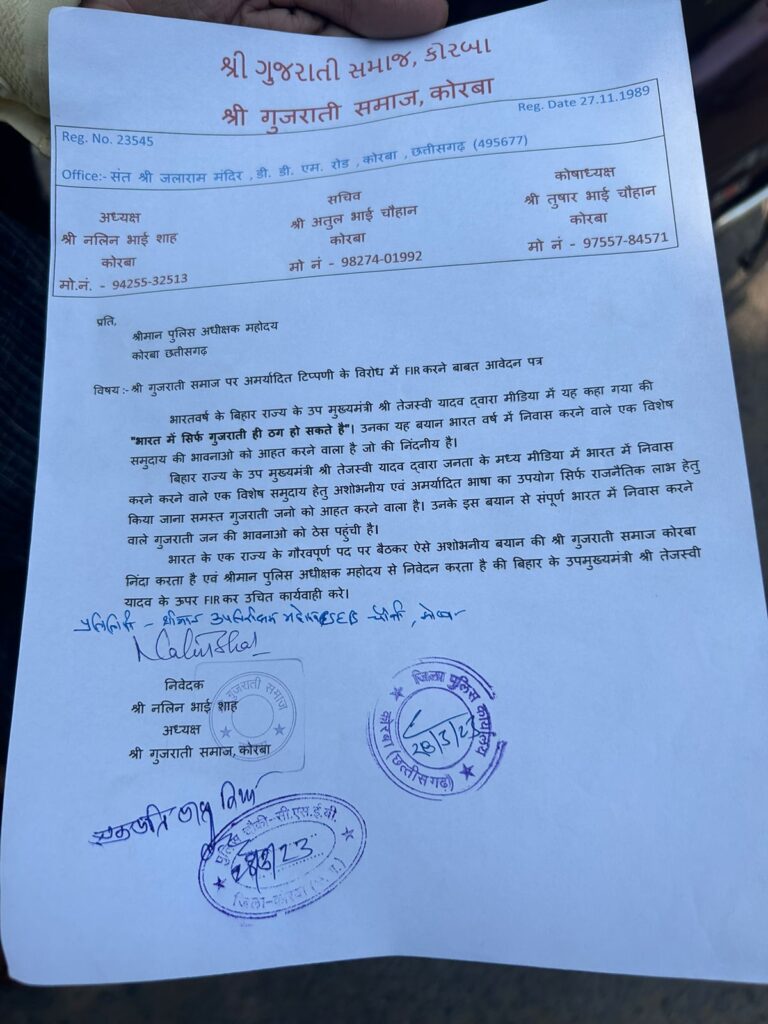 શ્રી ગુજરાતી સમાજ, કોરબા
श्री गुजराती समाज, कोरबा
Reg. No. 23545
Reg. Date 27.11.1989
Office:- संत श्री जलाराम मंदिर , डी. डी. एम. रोड , कोरबा , छत्तीसगढ़ (495677)
अध्यक्ष
श्री नलिन भाई शाह
कोरबा
मो.नं. - 94255-32513
सचिव
श्री अतुल भाई चौहान
कोरबा
मो नं - 98274-01992
कोषाध्यक्ष
श्री तुषार भाई चौहान
कोरबा
मो नं - 97557-84571
प्रति,
श्रीमान पुलिस अधीक्षक महोदय
कोरबा छत्तीसगढ़
विषय :- श्री गुजराती समाज पर अमर्यादित टिप्पणी के विरोध में FIR करने बाबत आवेदन पत्र
भारतवर्ष के बिहार राज्य के उप मुख्यमंत्री श्री तेजस्वी यादव द्वारा मीडिया में यह कहा गया की
"भारत में सिर्फ गुजराती ही ठग हो सकते है"। उनका यह बयान भारत वर्ष में निवास करने वाले एक विशेष
समुदाय की भावनाओ को आहत करने वाला है जो की निंदनीय है।
बिहार राज्य के उप मुख्यमंत्री श्री तेजस्वी यादव द्वारा जनता के मध्य मीडिया में भारत में निवास
करने करने वाले एक विशेष समुदाय हेतु अशोभनीय एवं अमर्यादित भाषा का उपयोग सिर्फ राजनैतिक लाभ हेतु
किया जाना समस्त गुजराती जनो को आहत करने वाला है। उनके इस बयान से संपूर्ण भारत में निवास करने
वाले गुजराती जन की भावनाओ को ठेस पहुंची है।
भारत के एक राज्य के गौरवपूर्ण पद पर बैठकर ऐसे अशोभनीय बयान की श्री गुजराती समाज कोरबा
निंदा करता है एवं श्रीमान पुलिस अधीक्षक महोदय से निवेदन करता है की बिहार के उपमुख्यमंत्री श्री तेजस्वी
यादव के ऊपर FIR कर उचित कार्यवाही करे।
प्रतिलिपि - श्रीमान
निवेदक
श्री नलिन भाई शाह
अध्यक्ष
श्री गुजराती समाज, कोरबा
गुजराती समाज
जिला पुलिस कार्यालय
कोरबा (छत्तीसगढ़)
28/3/23
पुलिस चौकी-सी.एस.ई.बी.
जिला-कोरबा